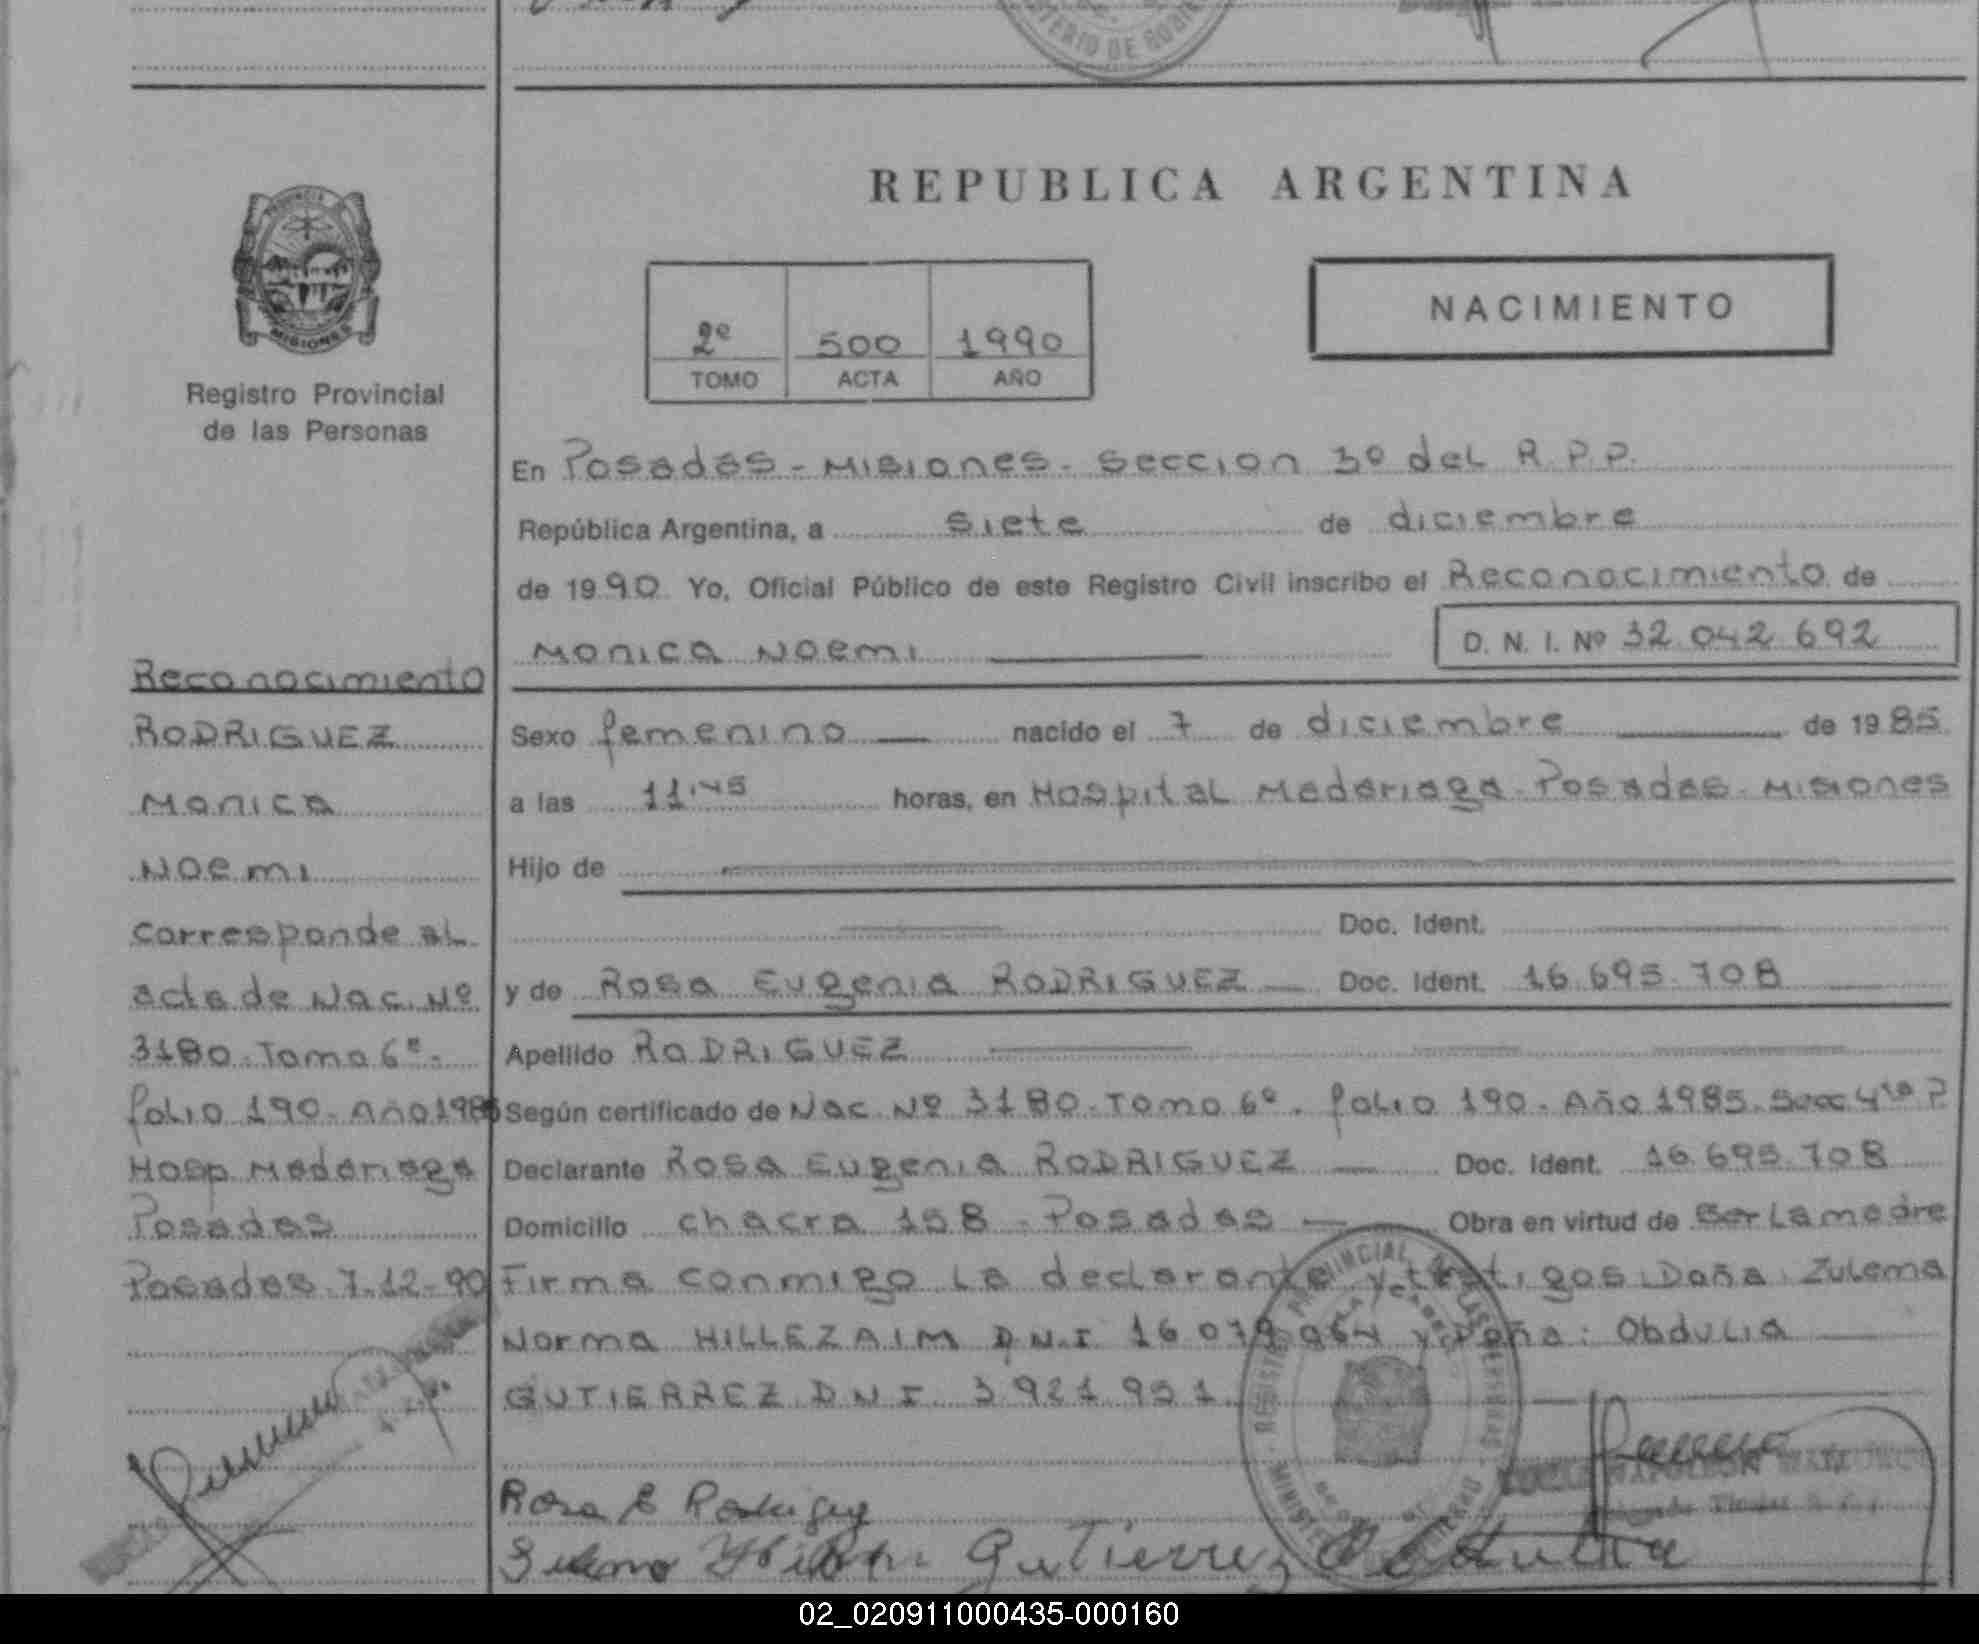 REPUBLICA ARGENTINA
PROVINCIA
MISIONES
Registro Provincial
de las Personas
2º 500 1990
TOMO ACTA AÑO
NACIMIENTO
En Posadas - Misiones - Seccion 3º del R.P.P.
República Argentina, a siete de diciembre
de 1990 Yo, Oficial Público de este Registro Civil inscribo el Reconocimiento de
Monica Noemi D. N. I. Nº 32.042.692
Reconocimiento
RODRIGUEZ
Monica
Noemi
corresponde al
acta de Nac. Nº
3180. Tomo 6º.
folio 190. Año 1985
Hosp. Madariaga
Posadas
Posadas 7.12-90
Sexo femenino nacido el 7 de diciembre de 1985
a las 11.45 horas, en Hospital Madariaga. Posadas. Misiones
Hijo de
Doc. Ident.
y de Rosa Eugenia RODRIGUEZ Doc. Ident. 16.695.708
Apellido RODRIGUEZ
Según certificado de Nac. Nº 3180. Tomo 6º. folio 190. Año 1985. Secc 4ta P
Declarante Rosa Eugenia RODRIGUEZ Doc. Ident. 16.695.708
Domicilio chacra 158 - Posadas Obra en virtud de Ser la madre
Firma conmigo la declarante y testigos: Doña: Zulema
Norma HILLEZAIM D.N.I. 16.079.064 y Doña: Obdulia
GUTIERREZ D.N.I. 3.921.951
Rosa E Rodriguez
Gutierrez Obdulia
02_020911000435-000160